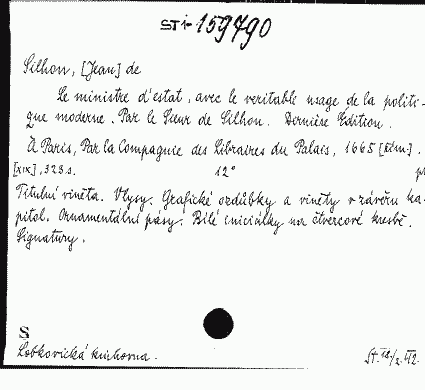 STi- 159790
Silhon, [Jean] de
Le ministre d'estat, avec le veritable usage de la politi-
que moderne. Par le Sieur de Silhon. Dernière Edition.
À Paris, Par la Compagnie des Libraires du Palais, 1665
[XIX], 323 s. 12°
Titulní viněta. Vlysy. Grafické ozdůbky a viněty v závěru ka-
pitol. Ornamentální pásy. Bílé iniciálky na čtvercové kresbě.
Signatury.
S
Lobkovická knihovna.